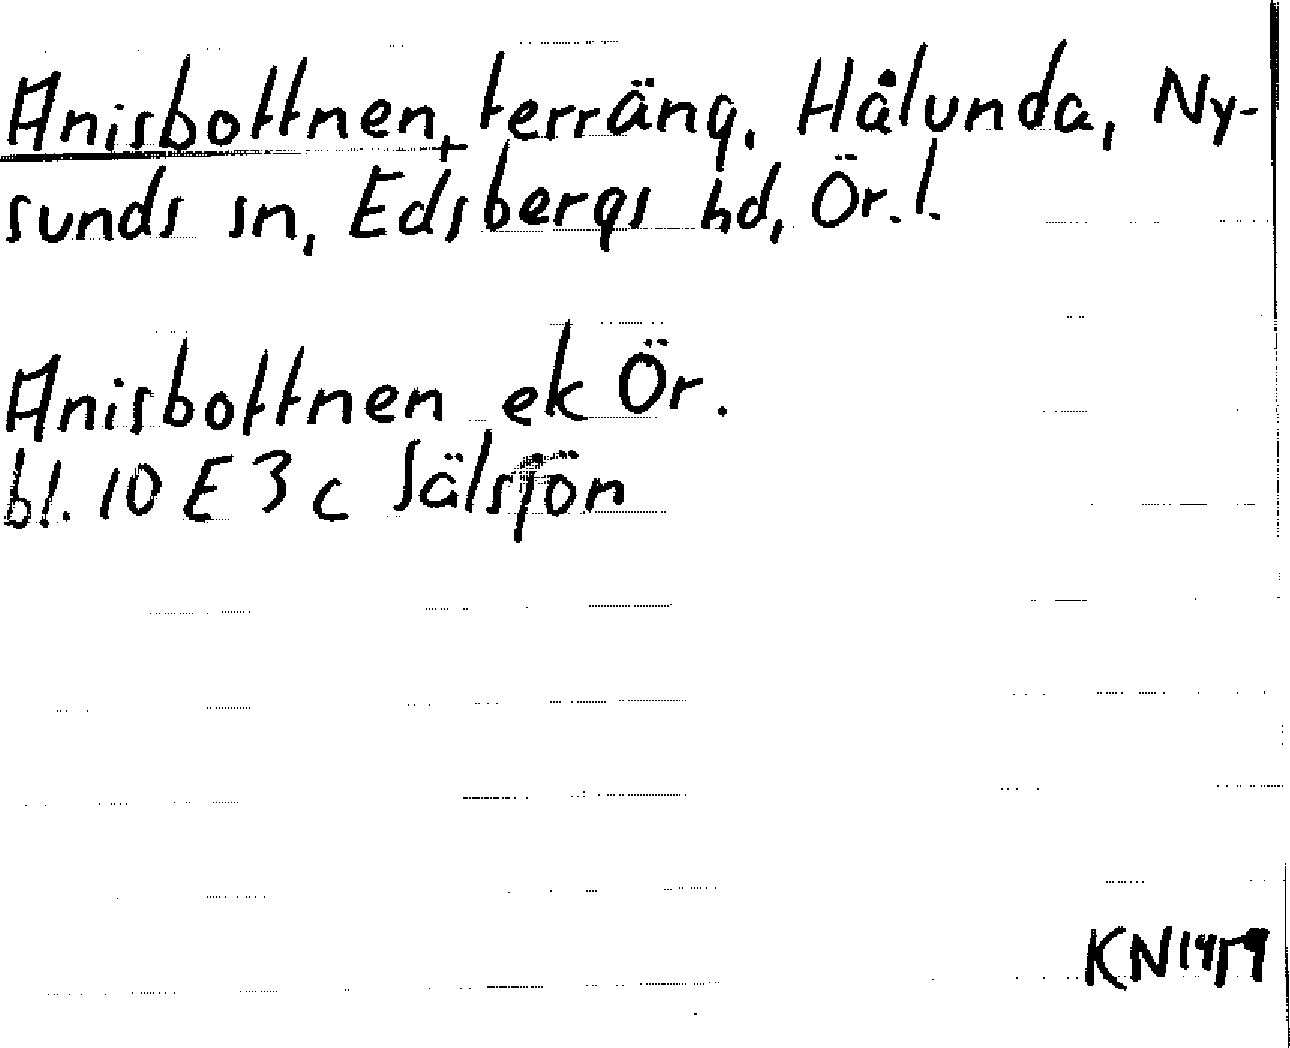 Anisbottnen, terräng, Hålunda, Ny-
sunds sn, Edsbergs hd, Ör.l.
Anisbottnen ek Ör.
bl. 10 E 3 c Sälsjön
KN